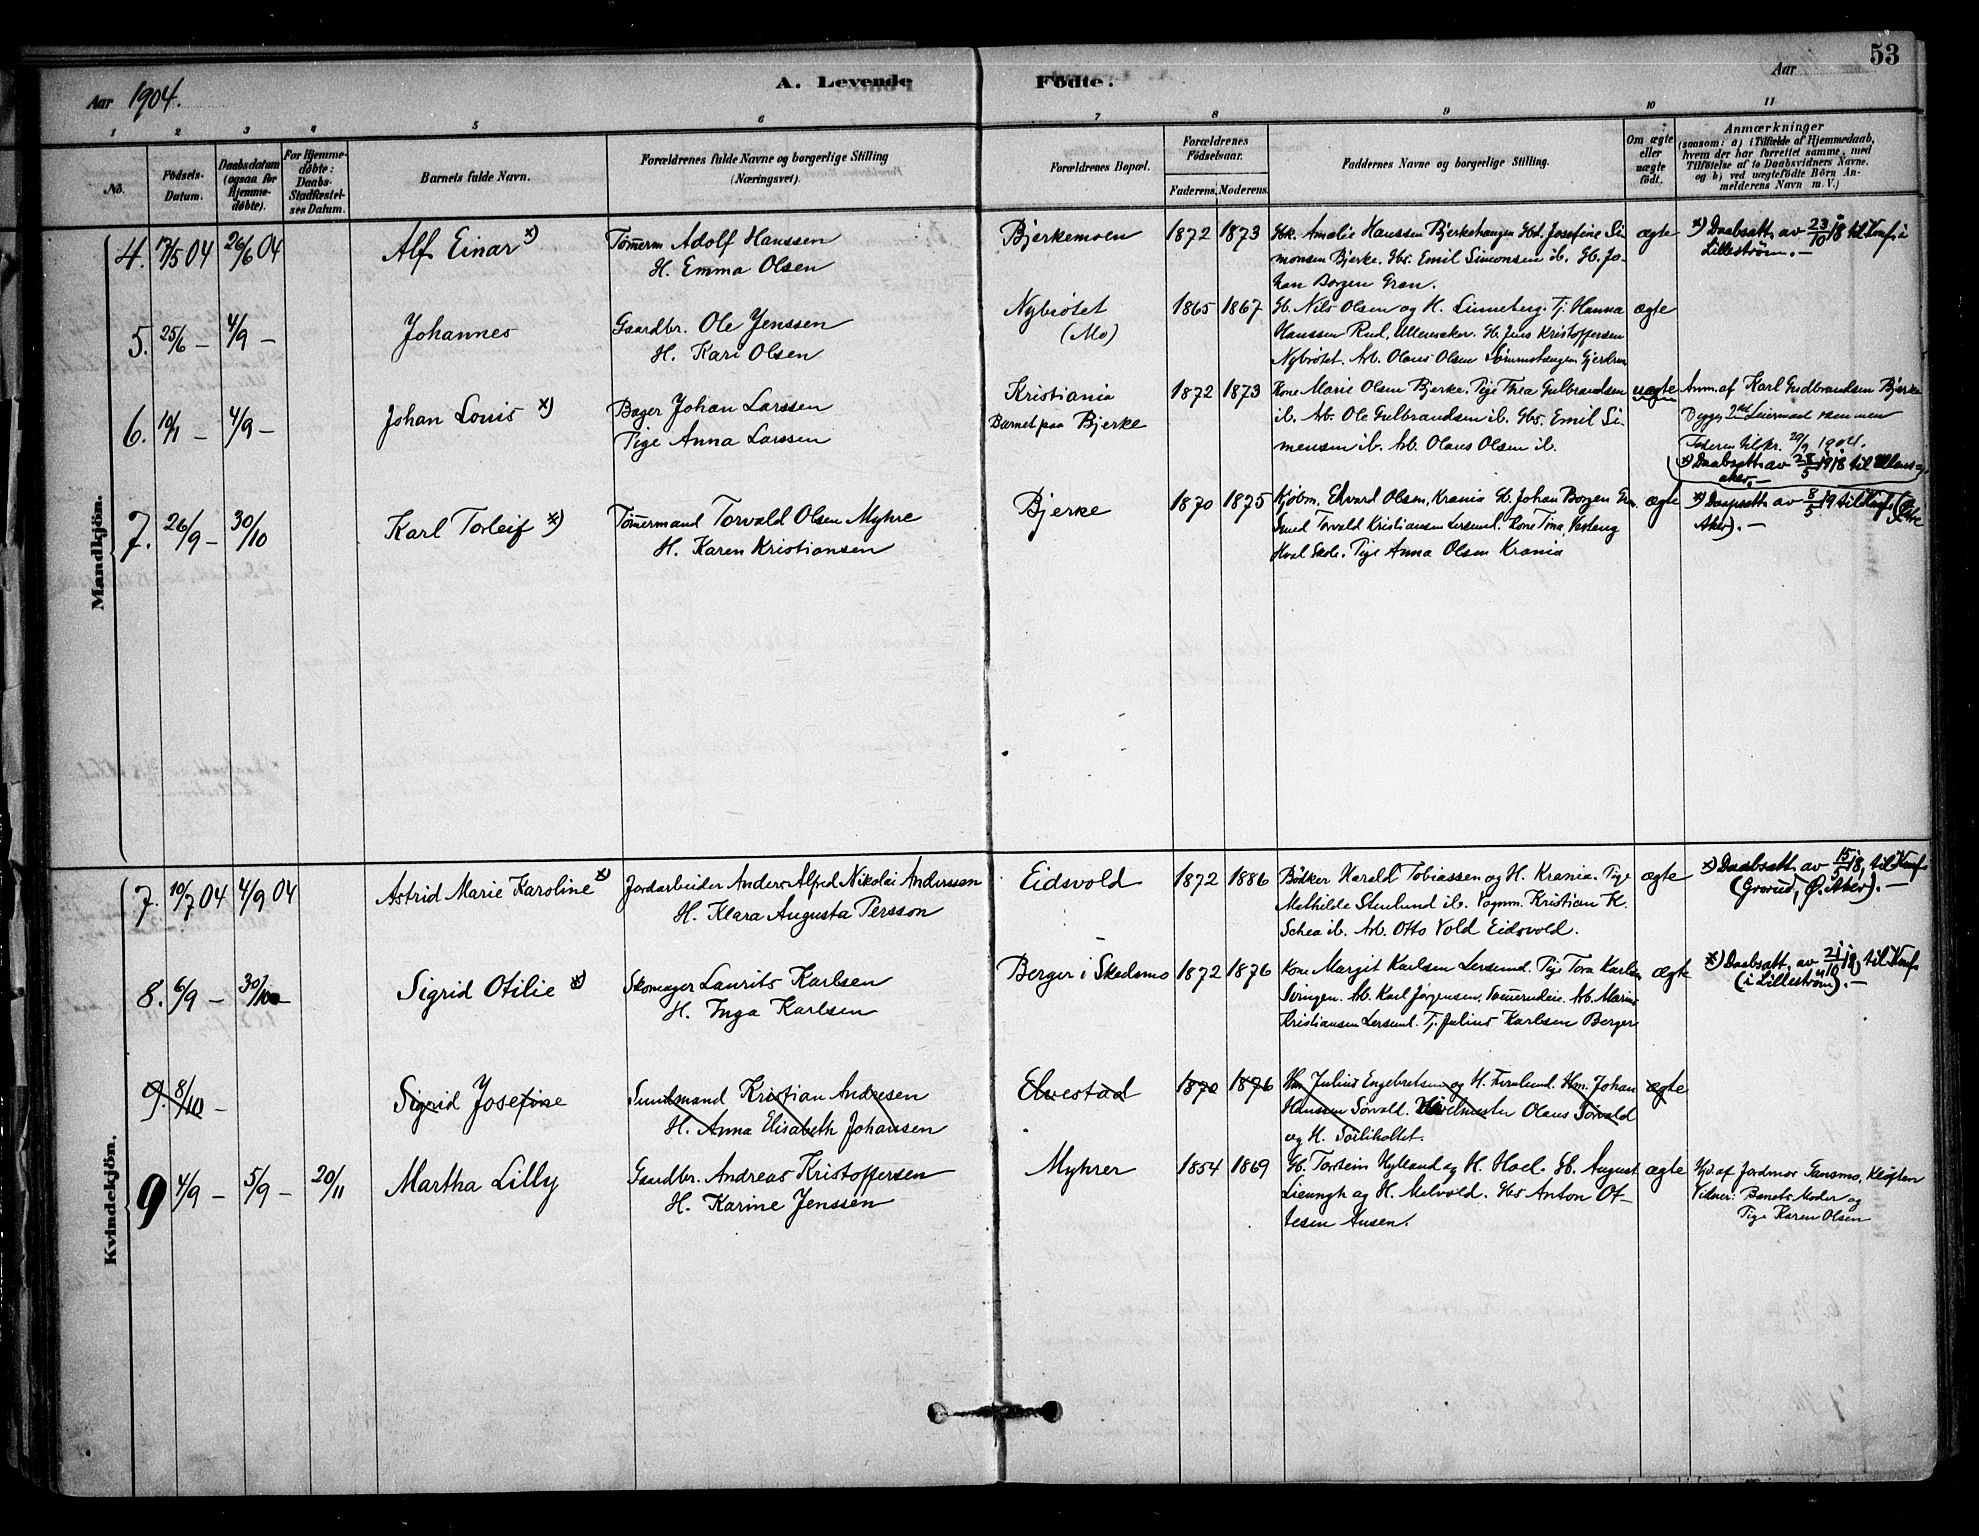 53
Aar 1904.
A. Levende Födte.
Aar
1 2 3 4 5 6 7 8 9 10 11
No.
Födsels-Datum.
Daabsdatum (ogsaa for Hjemme-döbte).
For Hjemme-döbte: Daabs-Stadfæstel-ses Datum.
Barnets fulde Navn.
Forældrenes fulde Navne og borgerlige Stilling
(Næringsvei).
Forældrenes Bopæl.
Forældrenes Födselsaar.
Faderens. Moderens.
Faddernes Navne og borgerlige Stilling.
Om ægte eller uægte födt.
Anmærkninger
(saasom: a) i Tilfælde af Hjemmedaab,
hvem der har forrettet samme, med
Tilföielse af to Daabsvidners Navne.
og b) ved uægtefödte Börn An-
melderens Navn m. V.)
Mandkjön.
4. 17/5 04 26/6 04 Alf Einar x) Tømerm Adolf Hanssen Bjerkemoen 1872 1873 Gbk. Amalie Hanssen Bjerkehaugen Gbd. Josefine Si- ægte x) Daabsatt. av 23/10 18 til Konf. i
H. Emma Olsen monsen Bjerke. Gbs. Emil Simonsen ib. Gb. Jo- Lillestrøm. —
han Borgen Gran.
5. 25/6 — 4/9 — Johannes Gaardbr. Ole Jenssen Nybrøtet 1865 1867 Gb. Nils Olsen og H. Linneberg. Tj. Hanna ægte
H. Kari Olsen (Mo) Hanssen Rud, Ullensaker. Gb. Jens Kristoffersen
Nybrøtet. Arb. Olaus Olsen Gjerdrum
6. 4/9 — Johan Louis x) Bager Johan Larssen Kristiania 1872 1873 Kone Marie Olsen Bjerke. Pige Thea Gulbrandsen uægte Anm. af Karl Gudbrandsen Bjerke
Pige Anna Larssen Barnet paa Bjerke ib. Arb. Ole Gulbrandsen ib. Gbs. Emil Si- Begges 2det Leiermaal sammen
mensen ib. Arb. Olaus Olsen ib. 1904.
x) Daabsatt. av 28/5 1918 til Ullens-
aker. —
7. 26/9 — 30/10 Karl Torleif x) Tømermand Torvald Olsen Myhre Bjerke 1870 1875 Kjøbm. Edvard Olsen, Krania Gb. Johan Borgen Gran ægte x) Daapsatt. av 8/5 19 til Konf.
H. Karen Kristiansen Smed Torvald Kristiansen Lersund. Kone Tina Aker). —
Hval Skole. Pige Anna Olsen Krania
Kvindekjön.
7. 10/7 04 4/9 04 Astrid Marie Karoline x) Jordarbeider Anders Alfred Nikolai Anderssen Eidsvold 1872 1886 Bødker Harald Tobiassen og H. Krania. Pige ægte x) Daabsatt. av 15/5 18, til Konf.
H. Klara Augusta Persson Mathilde Stenlund ib. Vognm. Kristian K. (Grorud, Ø. Aker). —
Schea ib. Arb. Otto Vold Eidsvold.
8. 6/9 — 30/10 — Sigrid Otilie x) Skomager Laurits Karlsen Berger i Skedsmo 1872 1876 Kone Margit Karlsen Lersund. Pige Tora Karlsen ægte x) Daabsatt. av 21/10 18, til Konf.
H. Inga Karlsen Svingen. Arb. Karl Jørgensen, Arb. Marius (i Lillestrøm). —
Kristiansen Lersund. Tj. Julius Karlsen Berger
9. 8/10 — Sigrid Josefine Smedmand Kristian Andresen Elvestad 1870 1876 Hm Julius Engebretsen og H. Furulund. Hm. Johan ægte
H. Anna Elisabeth Johansen Hanssen Sørvald. Olaus Sørvald
og H. Søiliholtet.
9 4/9 — 5/9 — 20/11 Martha Lilly Gaardbr. Andreas Kristoffersen Myhrer 1854 1869 Gb. Torstein Hylland og H. Hoel. Gb. August ægte Hjd. af Jordmor Gansmo, Kløften
H. Karine Jenssen Lieungh og H. Melvold. Gbs Anton Ot- Vidner: Barnets Moder og
tesen Ausen. Pige Karen Olsen